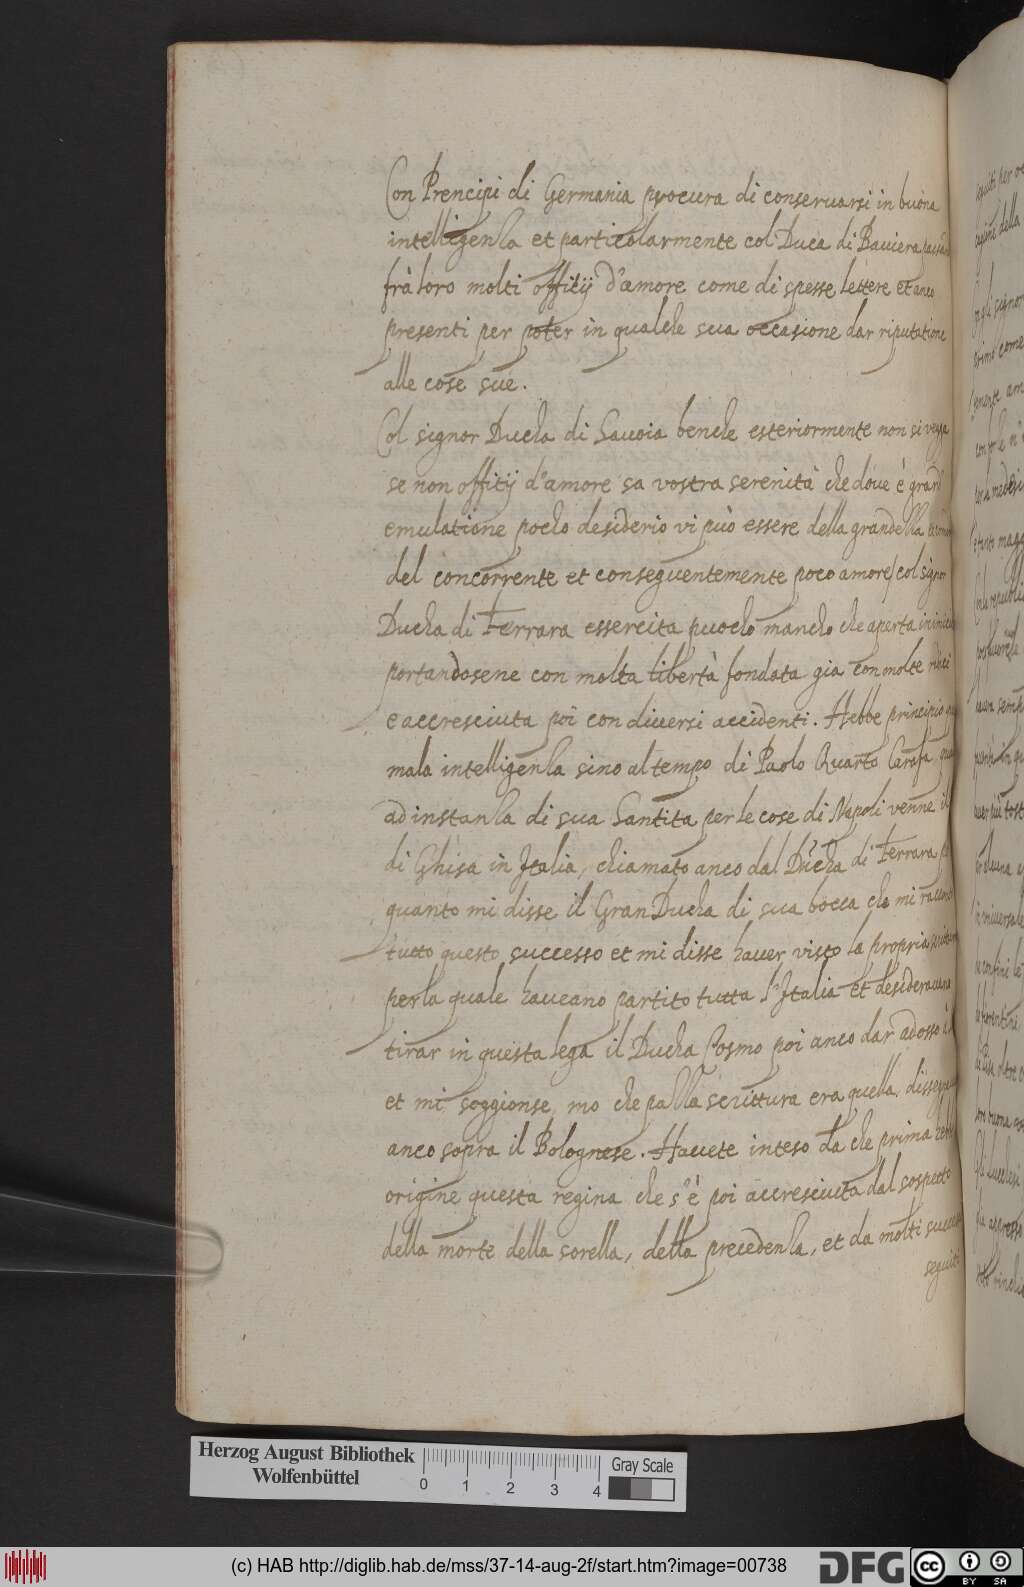 Con Prencipi di Germania procura di conseruarsi in buona
intelligenza et particolarmente col Duca di Bauiera
frà loro molti offitij d'amore come di spesse lettere et anco
presenti per poter in qualche sua occasione dar riputatione
alle cose sue.
Col signor Ducha di Sauoia benche esteriormente non si vegga
se non offitij d'amore sa vostra serenità che doue è grand
emulatione pocho desiderio vi può essere della grandezza
del concorrente et conseguentemente poco amore, col signor
Ducha di Ferrara essercita puocho mancho che aperta
portandosene con molta libertà fondata gia con molte
e accresciuta poi con diuersi accidenti. Hebbe principio
mala intelligenza sino al tempo di Paolo Quarto Carafa
ad instanza di sua Santita per le cose di Napoli venne il
di Ghisa in Italia, chiamato anco dal Ducha di Ferrara
quanto mi disse il Gran Ducha di sua bocca che mi
tutto questo successo et mi disse hauer visto la propria
per la quale haueano partito tutta l'Italia et desiderauano
tirar in questa lega il Ducha Cosmo poi anco dar adosso
et mi soggionse, mo che palla scrittura era quella,
anco sopra il Bolognese. Hauete inteso da che prima
origine questa regina che s'è poi accresciuta dal sospetto
della morte della sorella, della precedenza, et da molti
seguiti
Herzog August Bibliothek
Wolfenbüttel
0 1 2 3 4
Gray Scale
(c) HAB http://diglib.hab.de/mss/37-14-aug-2f/start.htm?image=00738
DFG
cc BY SA